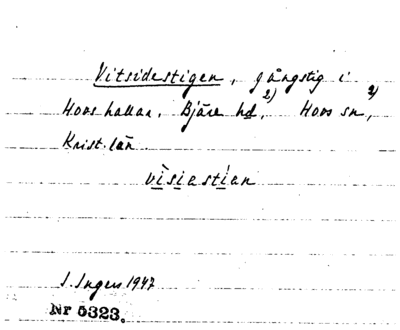 Vitsidestigen, gångstig i
Hovs hallar, Bjäre hd,²⁾ Hovs sn,²⁾
Krist. län
vìsiastían
J. Ingers 1947
Nr 5323.